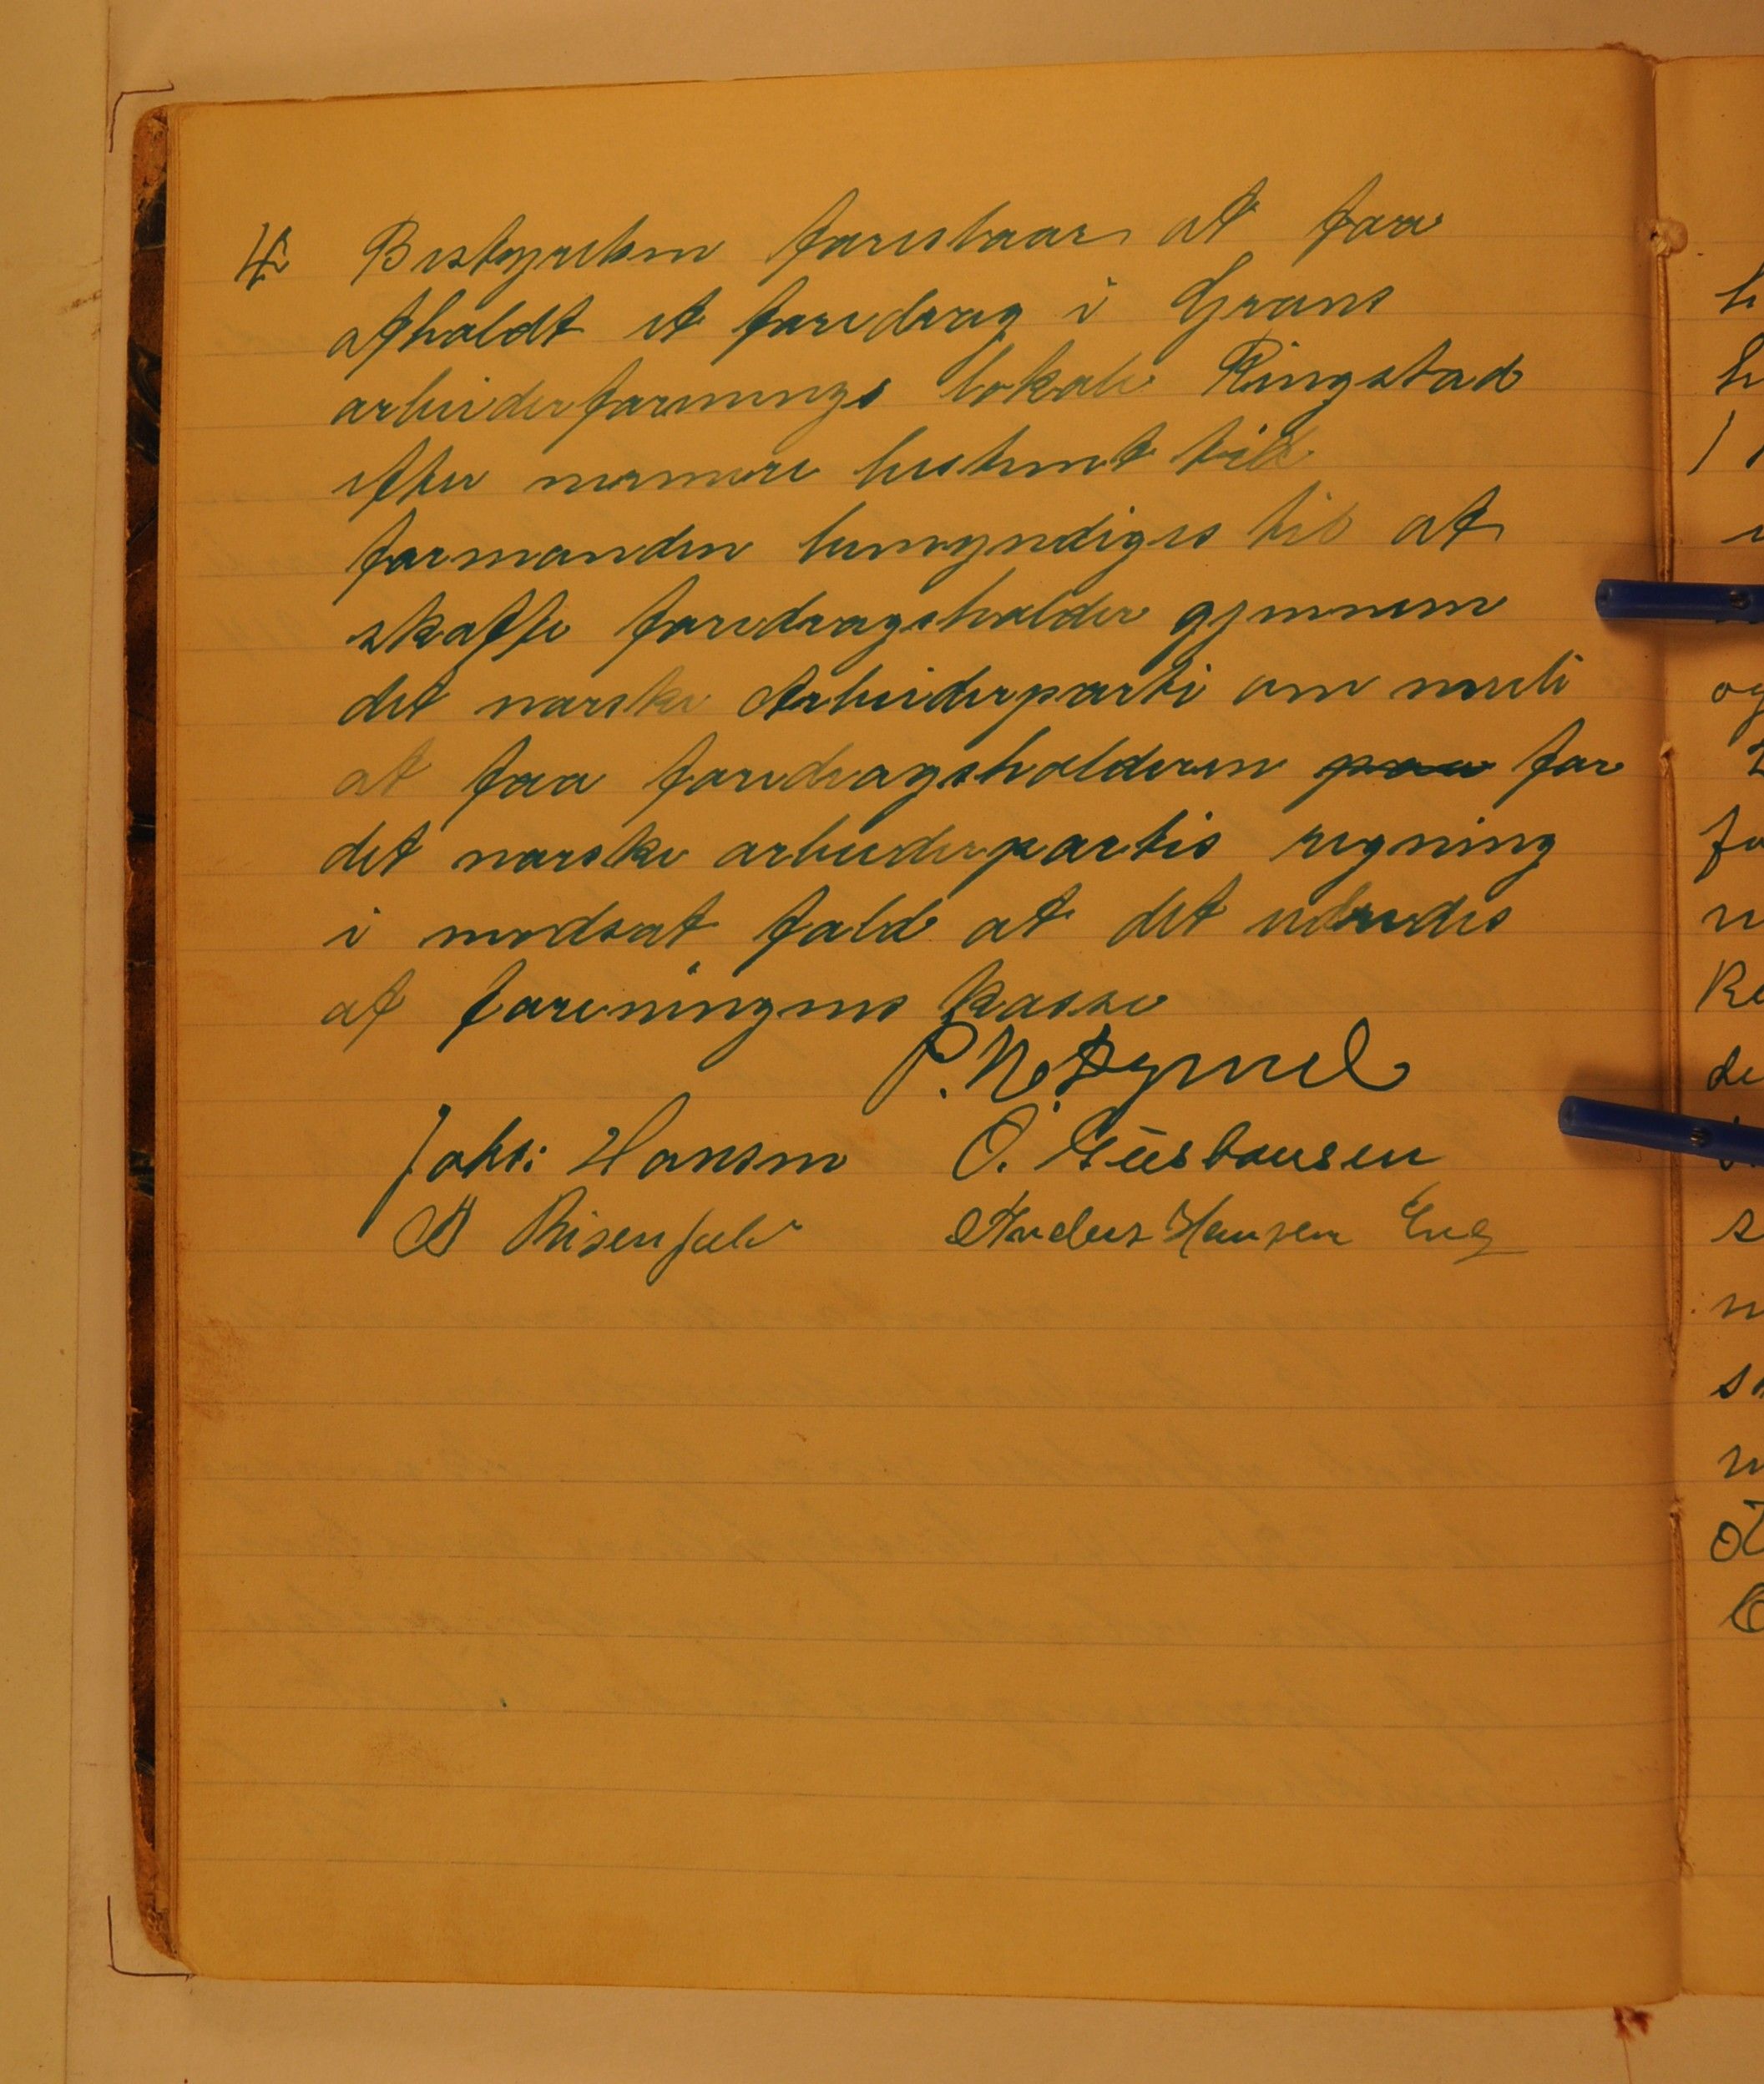 4 Bestyrelsen forestaar at faa
afholdt et foredrag i Grans
arbeiderforenings lokale Ringstad
efter nærmere bestemt tid
formanden bemyndiges til at
skaffe foredragsholder gjennem
det norske Arbeiderparti om
at faa foredragsholderen paa for
det norske arbeiderpartis regning
i modsat fald at det udredes
af foreningens kasse
P. N.
Johs: Hansen O.
Anders Hansen Eng